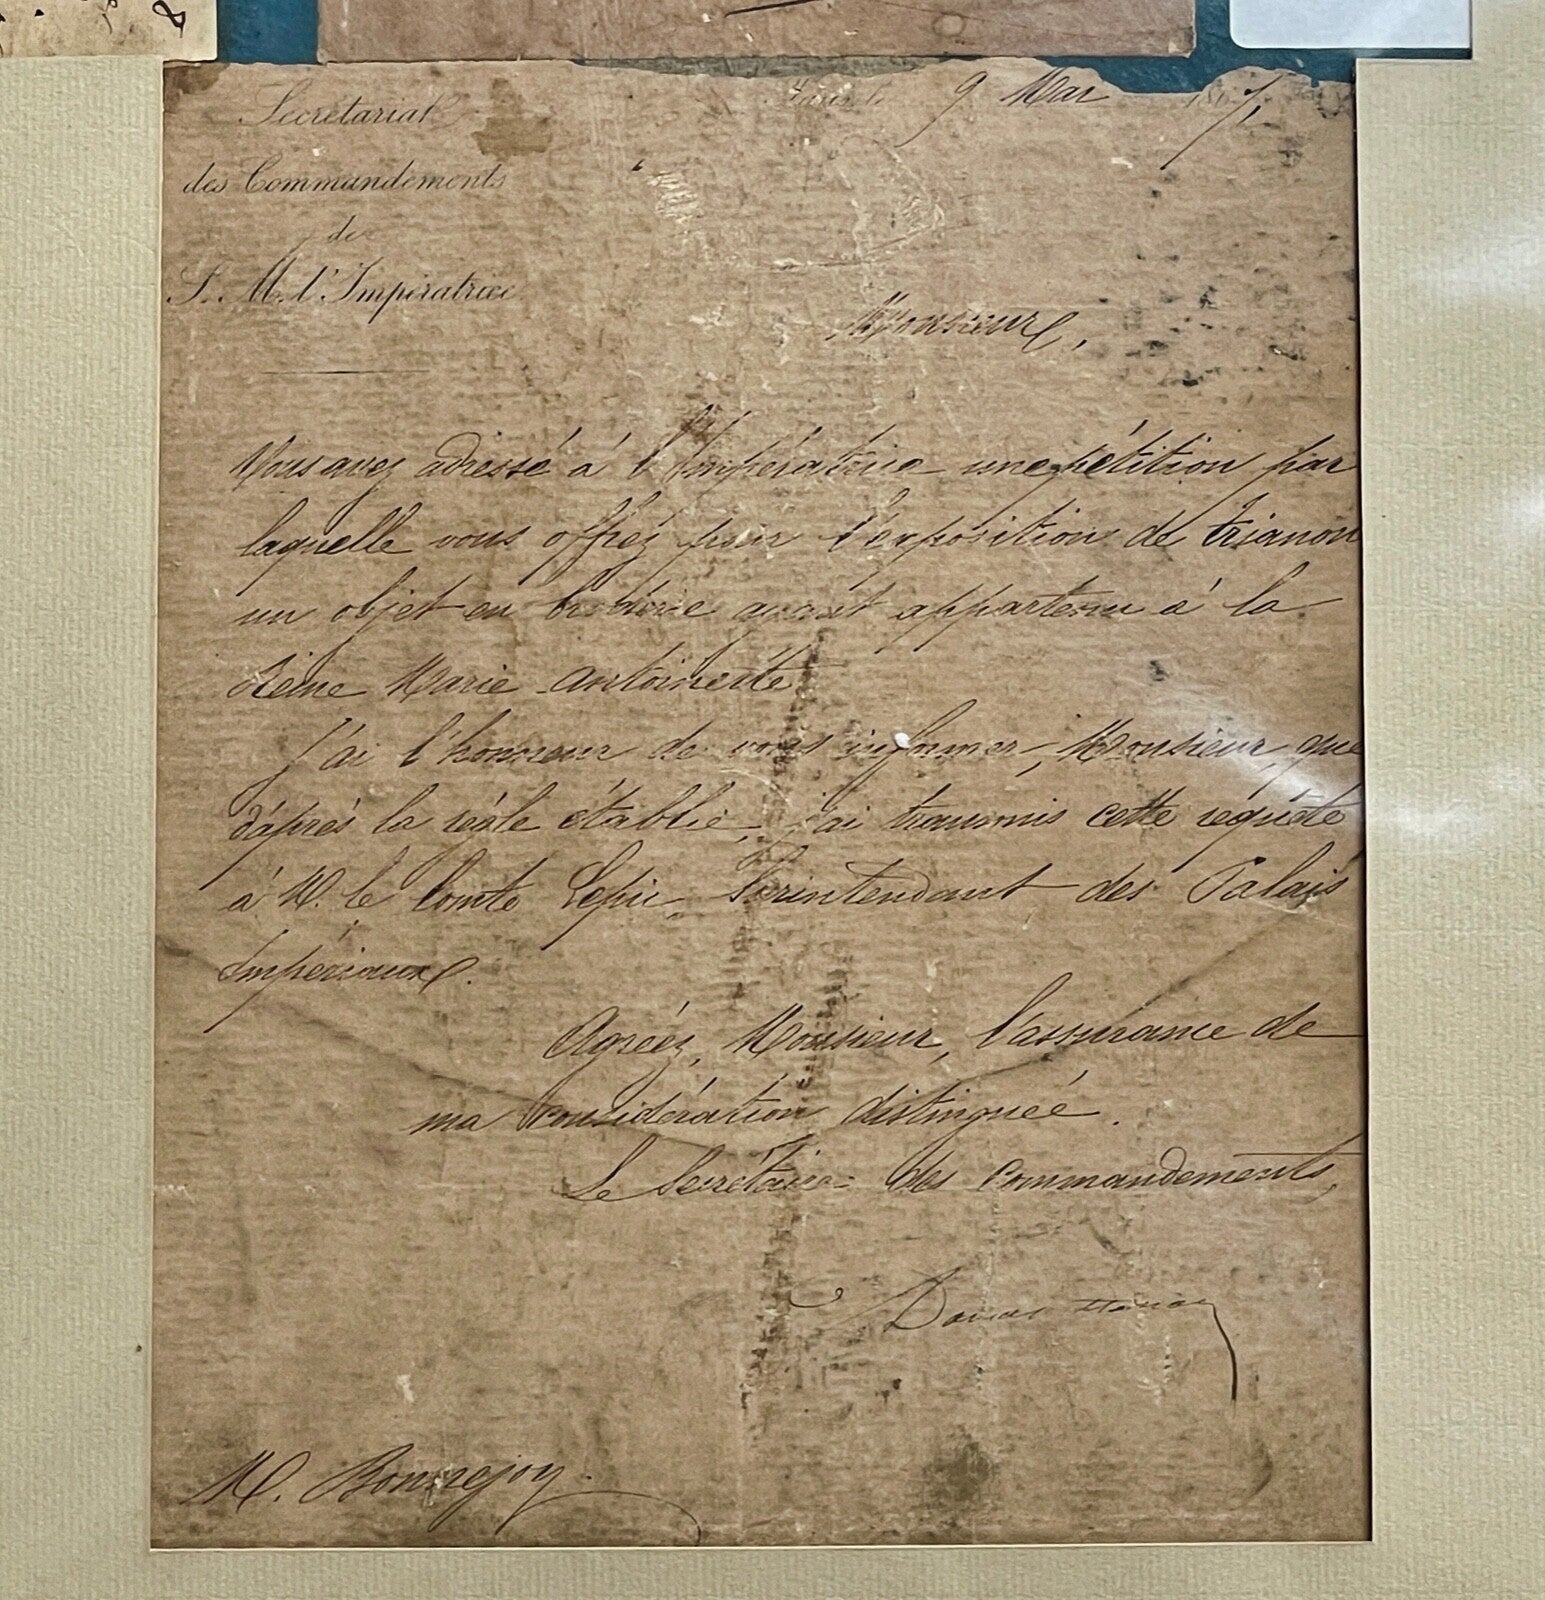 Secrétariat
des Commandements
de
S. M. l'Impératrice
Paris, le 9 Mai 1867,
Monsieur,
Vous avez adressé à l'Impératrice une pétition par
laquelle vous offrez pour l'exposition de trianon
un objet en broderie ayant appartenu à la
Reine Marie Antoinette
J'ai l'honneur de vous informer, Monsieur, que
d'après la règle établie, j'ai transmis cette requête
à M. le Comte Lepic, Surintendant des Palais
Impériaux.
Agréez, Monsieur, l'assurance de
ma considération distinguée.
Le Secrétaire des Commandements,
Damas Hinard
M. Bonnejoy.